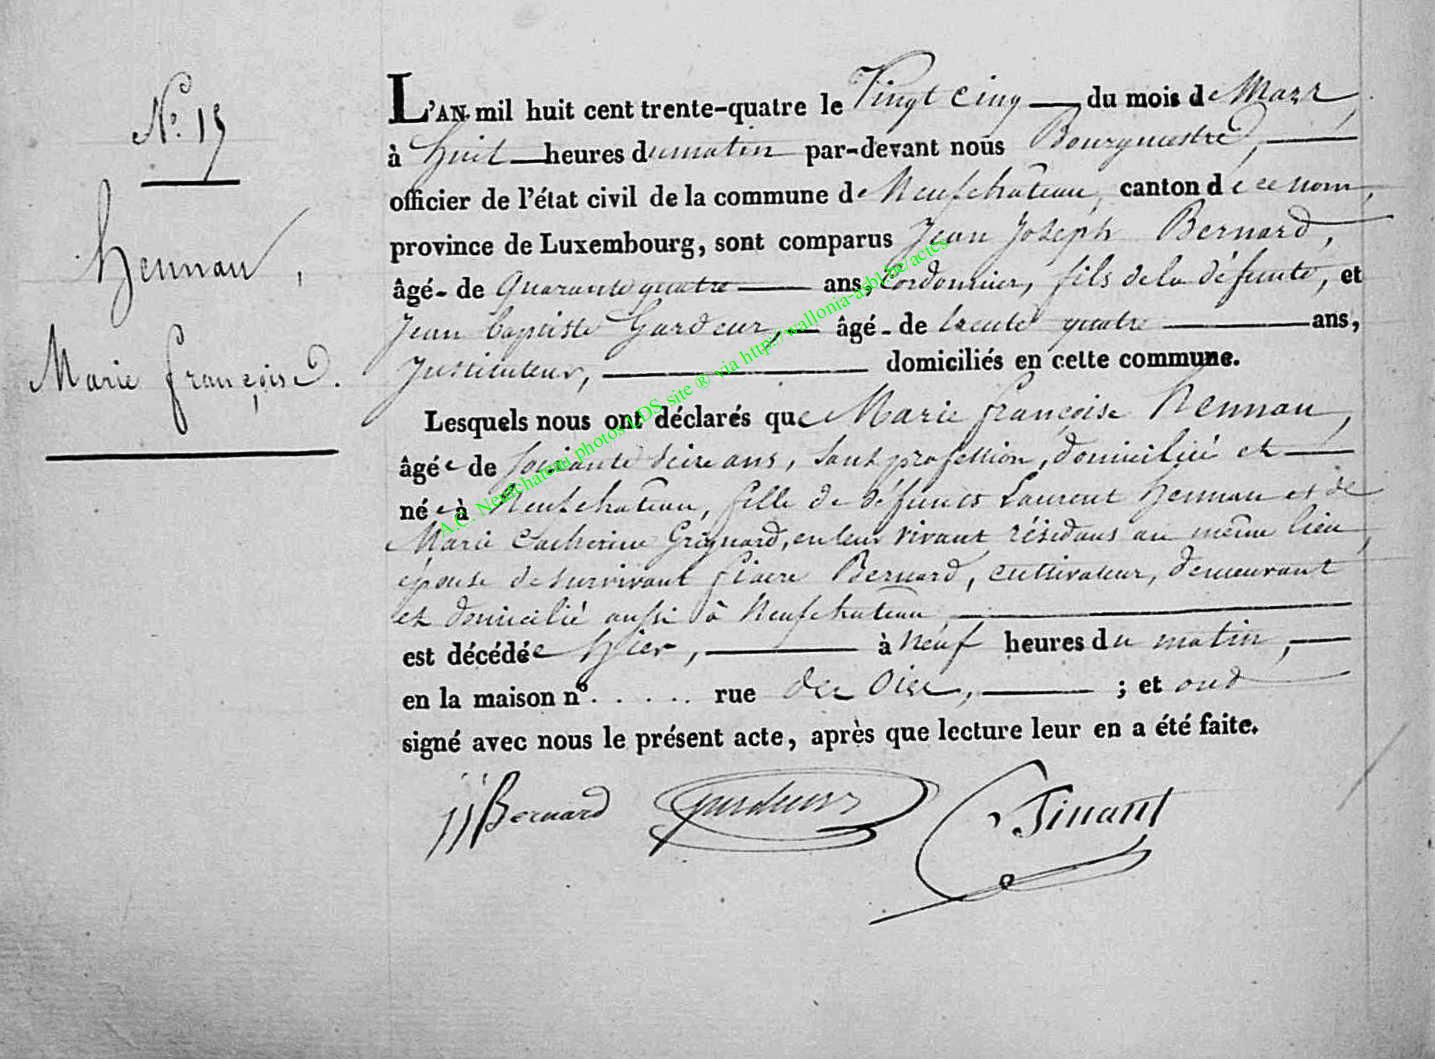 N.° 15
Hennau,
Marie françoise.
L'AN mil huit cent trente-quatre le Vingt cinq du mois de Mars,
à huit heures du matin par-devant nous Bourguestre,
officier de l'état civil de la commune de Neufchateau, canton de ce nom,
province de Luxembourg, sont comparus Jean Joseph Bernard,
âgé de Quarante quatre ans, Cordonnier, fils de la défunte, et
Jean baptiste Gardeur, âgé de trente quatre ans,
Instituteur, domiciliés en cette commune.
Lesquels nous ont déclarés que Marie françoise Hennau,
âgée de soixante seize ans, sans profession, domiciliée et
née à Neufchateau, fille de défuncts Laurent Hennau et de
Marie Catherine Grignard, en leur vivant résidans au même lieu,
épouse de survivant fiacre Bernard, cultivateur, demeurant
et domicilié aussi à Neufchateau,
est décédée hier, à neuf heures du matin,
en la maison n° . . . . . rue des Oies, ; et ont
signé avec nous le présent acte, après que lecture leur en a été faite.
JJ Bernard Gardeur Tinant
A.C. Neufchateau photos LDS, site ® via http://wallonia-asbl.be/actes